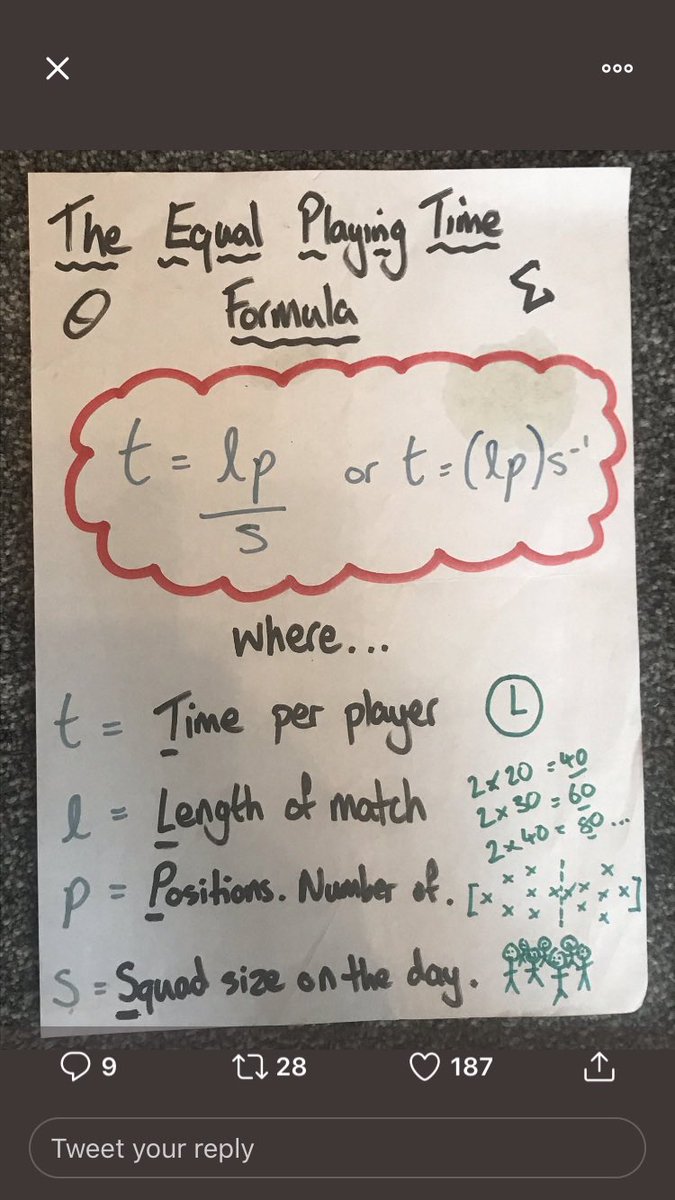 The Equal Playing Time
Formula
t = lp/s or t = (lp)s⁻¹
where...
t = Time per player
l = Length of match
2 x 20 = 40
2 x 30 = 60
2 x 40 = 80...
p = Positions. Number of.
s = Squad size on the day.
9 28 187
Tweet your reply